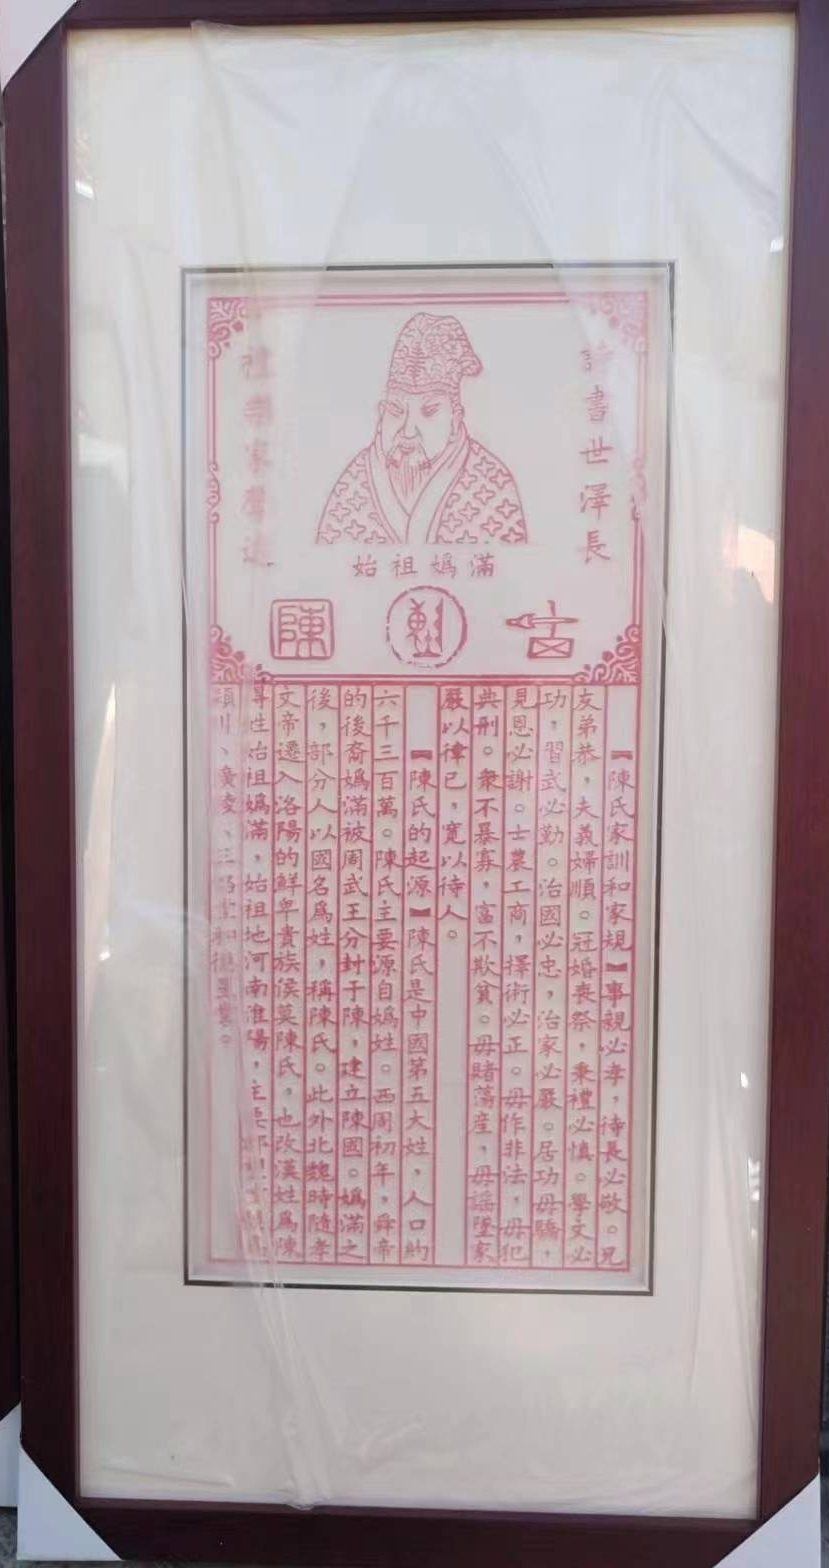 詩書世澤長
禮樂家聲遠
始祖媯滿
陳
【陳氏家訓和家規】事親必孝，待長必敬。兄
友弟恭，夫義婦順。冠婚喪祭，秉禮必慎。學文必
功，習武必勤。治國必忠，治家必嚴。居功毋驕，
見恩必謝。士農工商，擇術必正。毋作非法，毋犯
典刑。衆不暴寡，富不欺貧。毋賭蕩産，毋謡墜家
嚴以律已，寬以待人。
【陳氏的起源】陳氏是中國第五大姓，人口約
六千三百萬。陳氏主要源自媯姓。西周初年，舜帝
的後裔媯滿被周武王分封于陳，建立陳國。媯滿之
後，部分人以國名爲姓，稱陳氏。此外北魏時隨孝
文帝遷入洛陽的鮮卑貴族侯莫陳氏，也改漢姓爲陳
尋姓始祖媯滿，始祖地河南淮陽，主要
潁川、廣陵、三